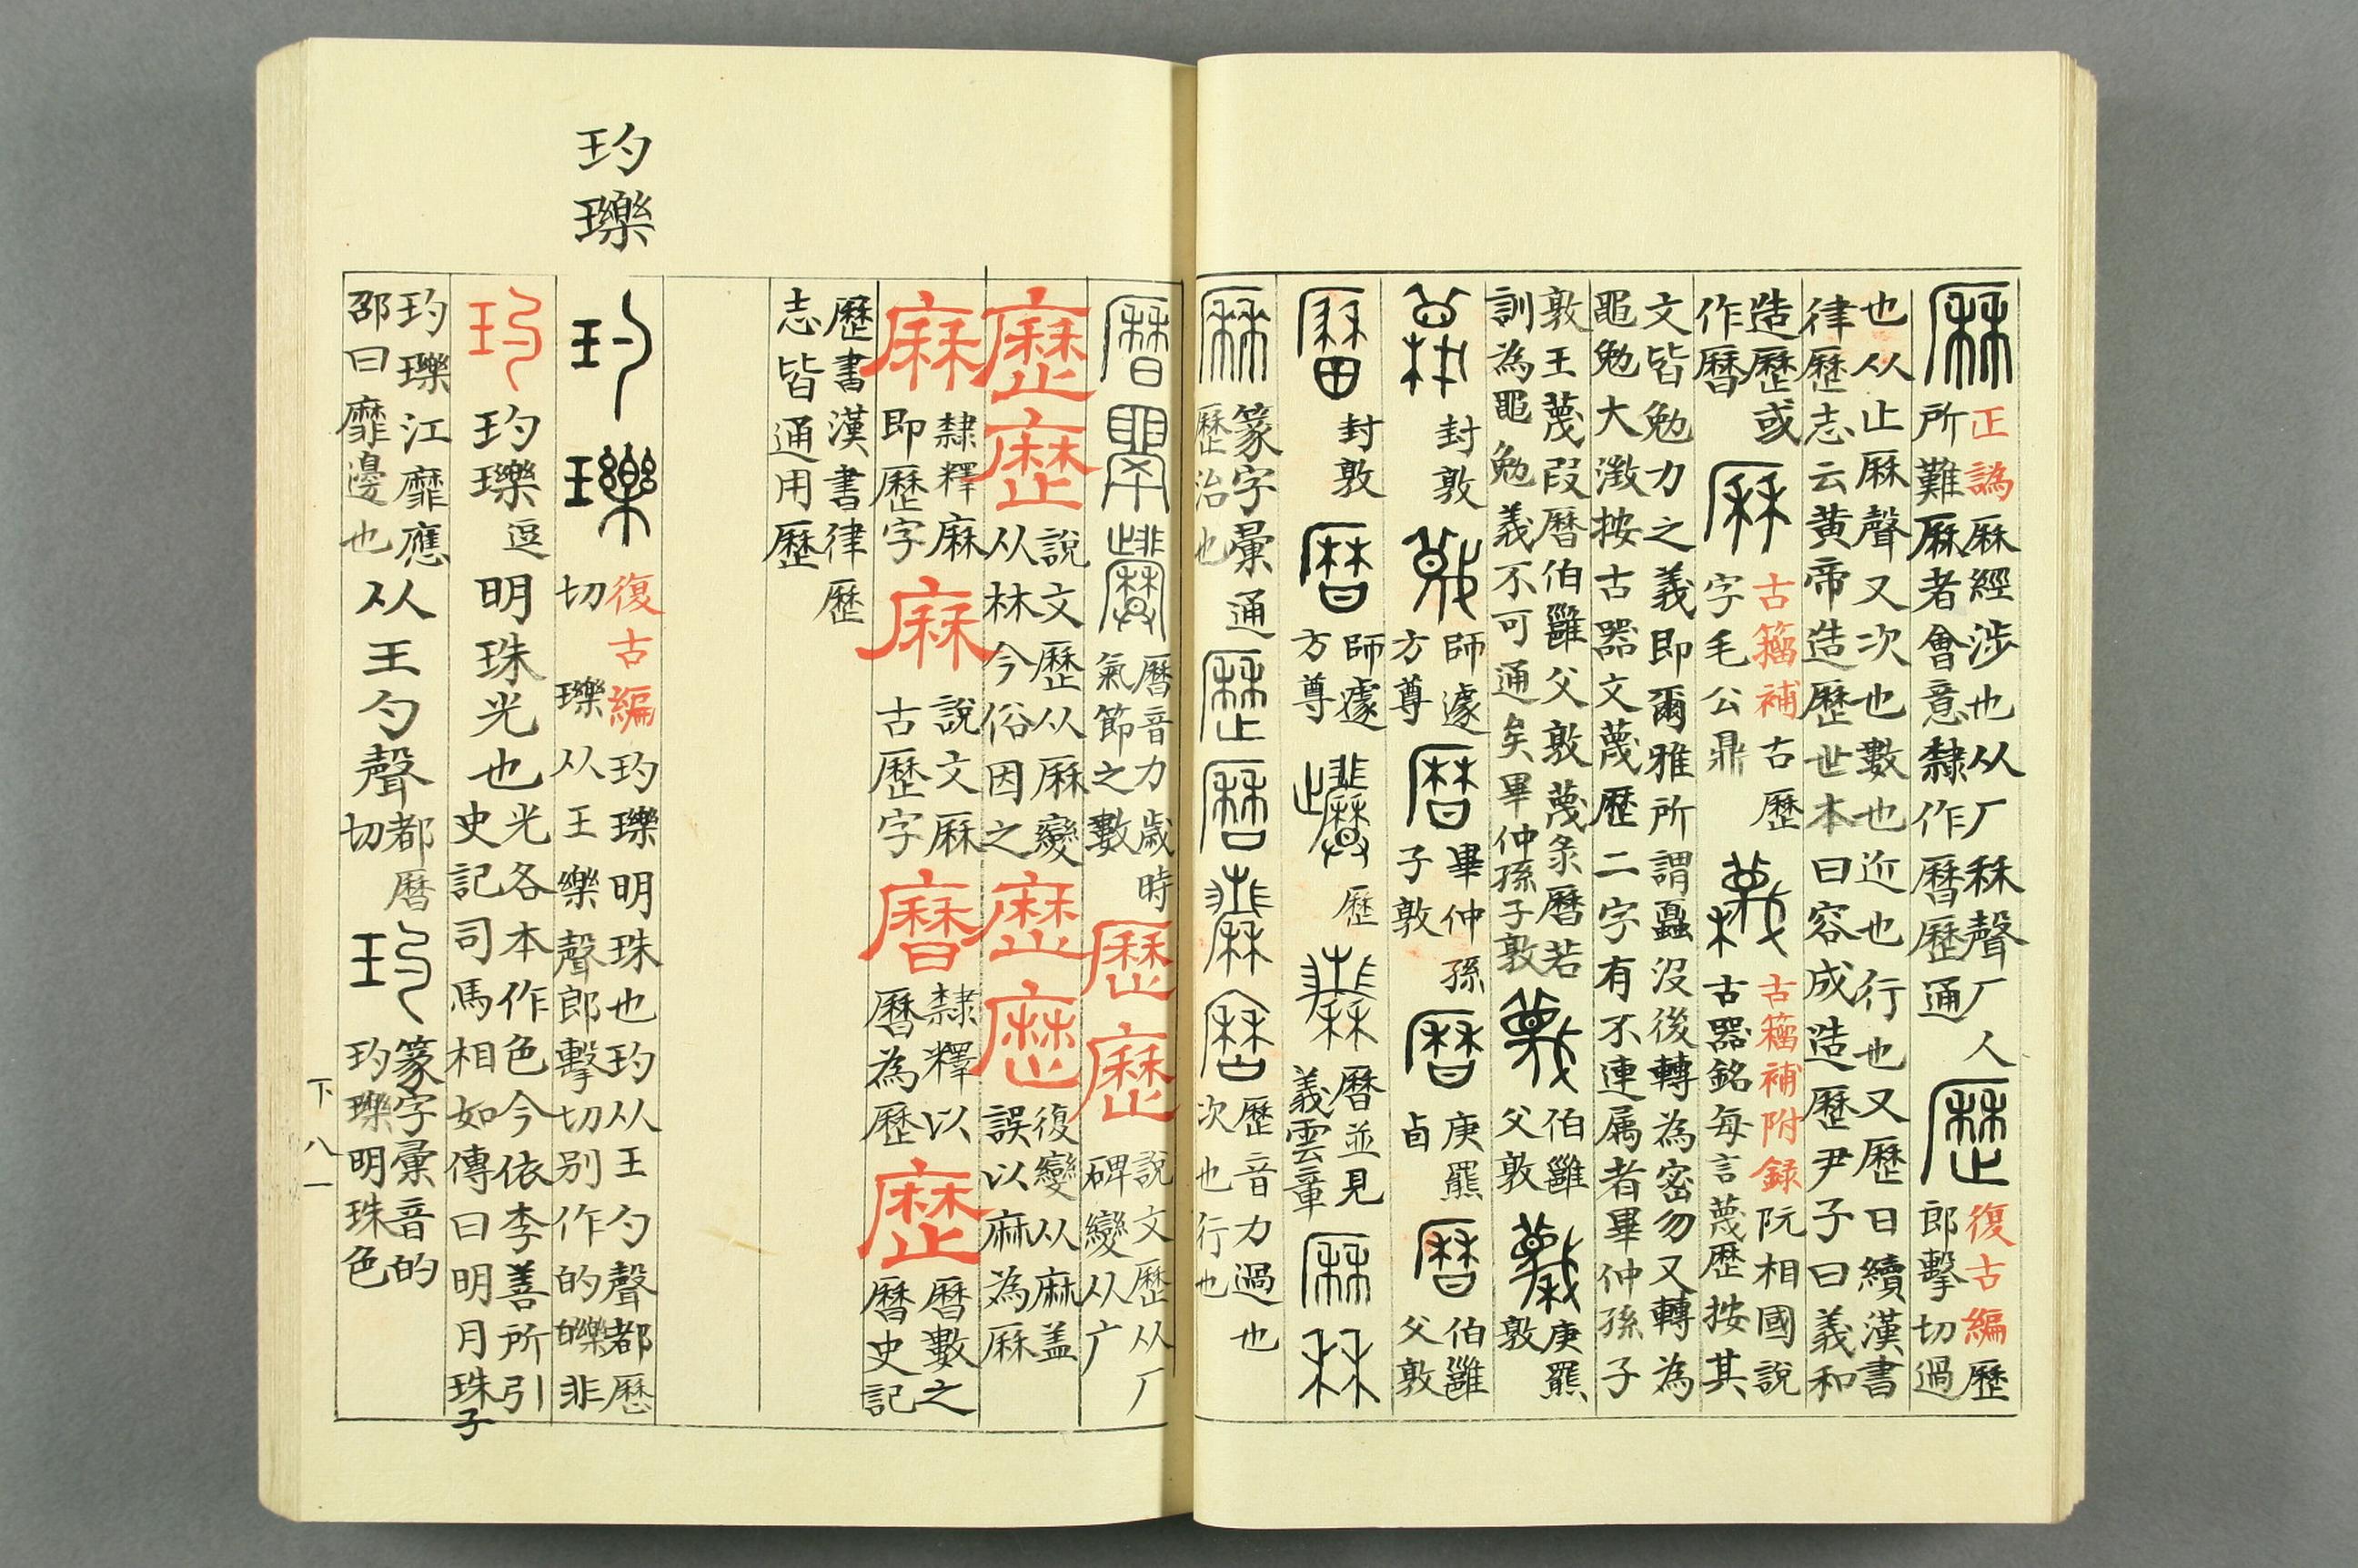 厤
正譌 厤經涉也从厂秝聲厂人
所難厤者會意隸作曆歷通
歷
復古編 歷
郎擊切過
也从止厤聲又次也數也近也行也又歷日續漢書
律歷志云黃帝造歷世本曰容成造歷尹子曰義和
造歷或
作曆
厤
古籀補 古歷
字毛公鼎
古籀補附録 阮相國說
古器銘每言蔑歷按其
文皆勉力之義即爾雅所謂蠠沒後轉為密勿又轉為
黽勉大澂按古器文蔑歷二字有不連属者畢仲孫子
敦王蔑叚曆伯雝父敦蔑彔曆若
訓為黽勉義不可通矣畢仲孫子敦
伯雝
父敦
庚羆
敦
封敦
師遽
方尊
曆
畢仲孫
子敦
曆
庚羆
卣
曆
伯雝
父敦
封敦
曆
師遽
方尊
歷
曆並見
義雲章
厤
秝
篆字彙通
歷治也
歷
歷音力過也
次也行也
曆
曆音力歲時
氣節之數
歷 歷
說文歷从厂
碑變从广
歷 歷
說文歷从厤變
从林今俗因之
歷 歷
復變从麻盖
誤以麻為厤
麻
隸釋麻
即歷字
麻
說文厤
古歷字
曆
隸釋以
曆為歷
歷
曆數之
曆史記
歷書漢書律歷
志皆通用歷
玓瓅
玓 瓅
復古編 玓瓅明珠也玓从王勺聲都歷
切 瓅从王樂聲郎擊切别作的皪非
玓 玓瓅逗明珠光也
光各本作色今依李善所引
史記司馬相如傳曰明月珠子
玓瓅江靡應
邵曰靡邊也
从王勺聲
都曆
切
玓
篆字彙音的
玓瓅明珠色
下 八一